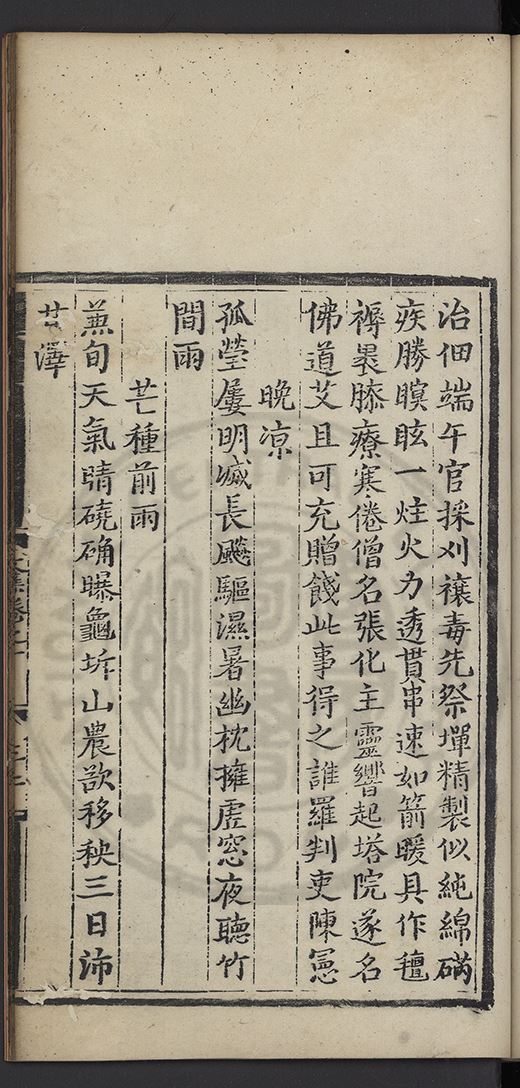 治佃端午官採刈禳毒先祭墠精製似純綿磒
疾勝瞑眩一炷火力透貫串速如箭暖具作氊
褥裹膝療寒倦僧名張化主靈響起塔院遂名
佛道艾且可充贈餞此事得之誰羅判吏陳憲
晩凉
孤螢屢明滅長飈驅濕暑幽枕擁虛窓夜聽竹
間雨
芒種前雨
兼旬天氣晴磽确曝龜坼山農欲移秧三日沛
甘澤